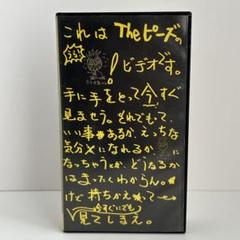 これは Theピーズの
ビデオです。
手に手をとって今すぐ
見ませう。それでもって、
いい事あるか、えっちな
気分〆になれるか
になっちゃうとか、どうなるか
はまったくわからん。
けど 持ちかえって
今すぐにでも
見てしまえ。